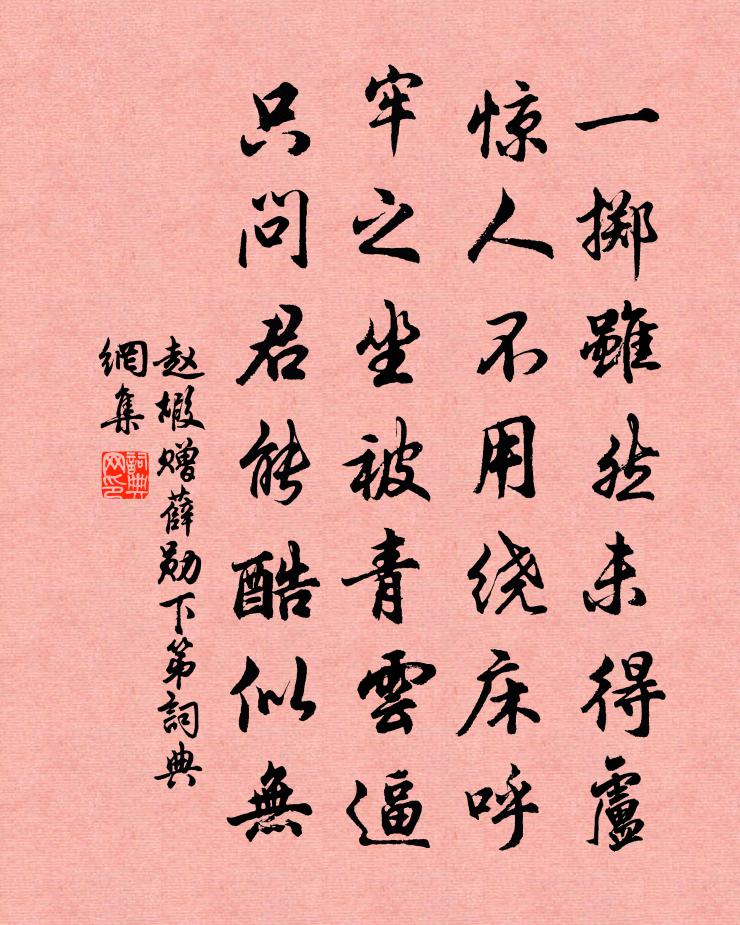 一掷雖然未得盧
惊人不用绕床呼
牢之坐被青雲逼
只问君能酷似無
赵嘏赠薛勋下第詞典
網集
詞典网印